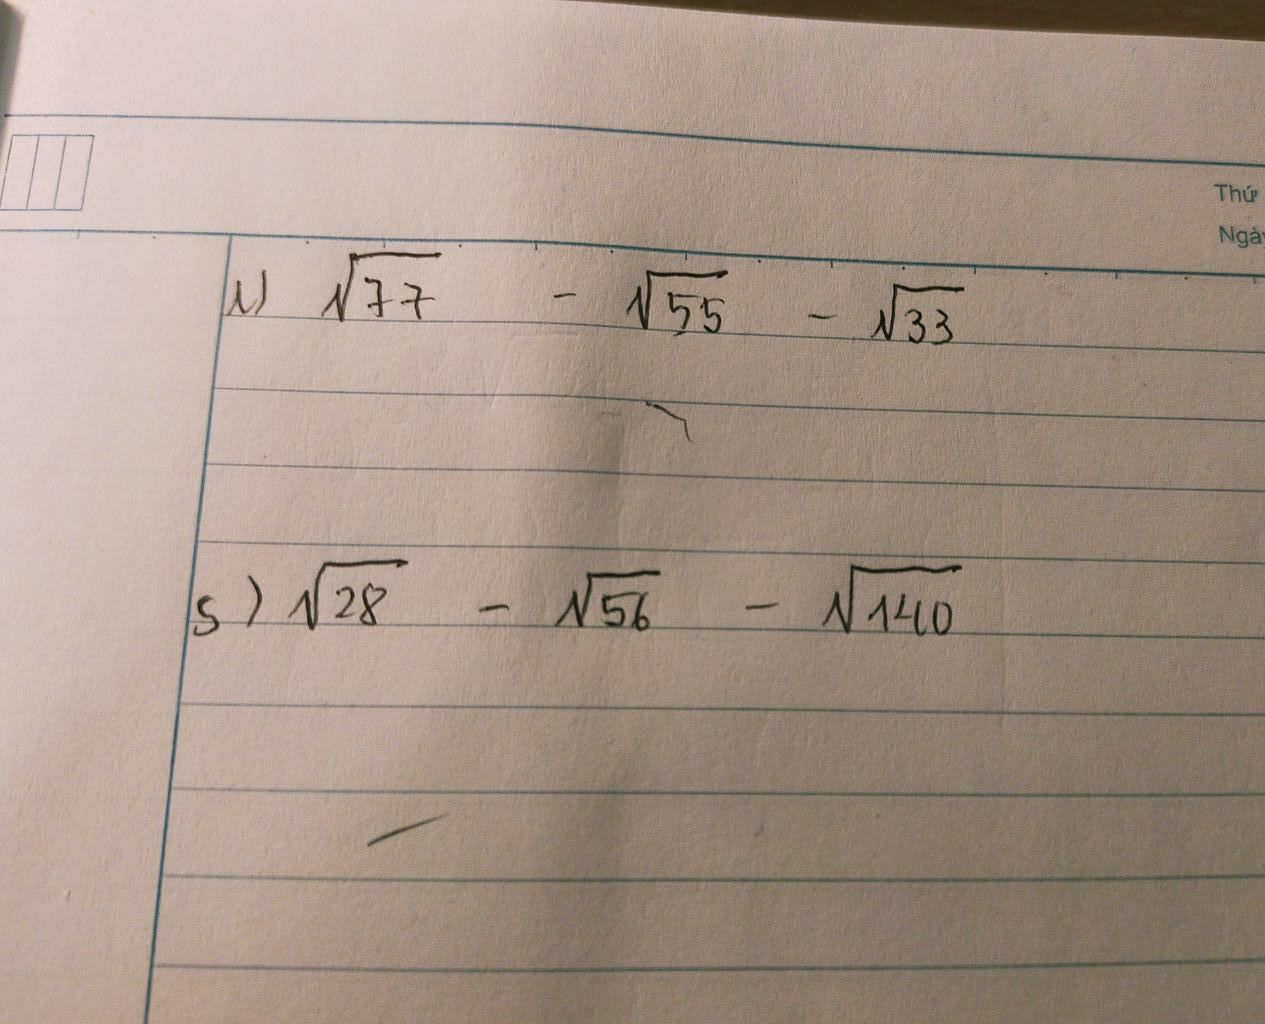 Thứ
Ngày
N) √77 - √55 - √33
5) √28 - √56 - √140